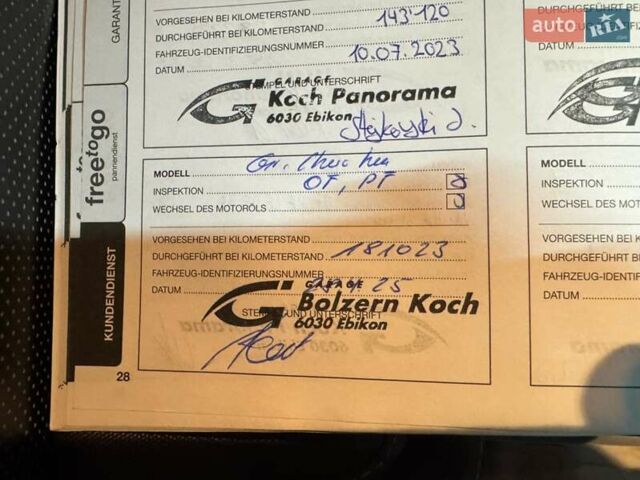 auto RIA .com
GARANT
VORGESEHEN BEI KILOMETERSTAND
DURCHGEFÜHRT BEI KILOMETERSTAND 143·120
FAHRZEUG-IDENTIFIZIERUNGSNUMMER
DATUM 10.07.2023
STEMPEL UND UNTERSCHRIFT
GARAGE
Koch Panorama
6030 Ebikon
free to go
pannendienst
MODELL
INSPEKTION OF, PF
WECHSEL DES MOTORÖLS
VORGESEHEN BEI KILOMETERSTAND
DURCHGEFÜHRT BEI KILOMETERSTAND 181023
FAHRZEUG-IDENTIFIZIERUNGSNUMMER
DATUM 25
GARAGE
Bolzern Koch
6030 Ebikon
STEMPEL UND UNTERSCHRIFT
KUNDENDIENST
28
DURCHGEFÜHRT
FAHRZEUG-IDENT
DATUM
MODELL
INSPEKTION
WECHSEL DES MO
VORGESEHEN BEI
DURCHGEFÜHRT
FAHRZEUG-IDENT
DATUM